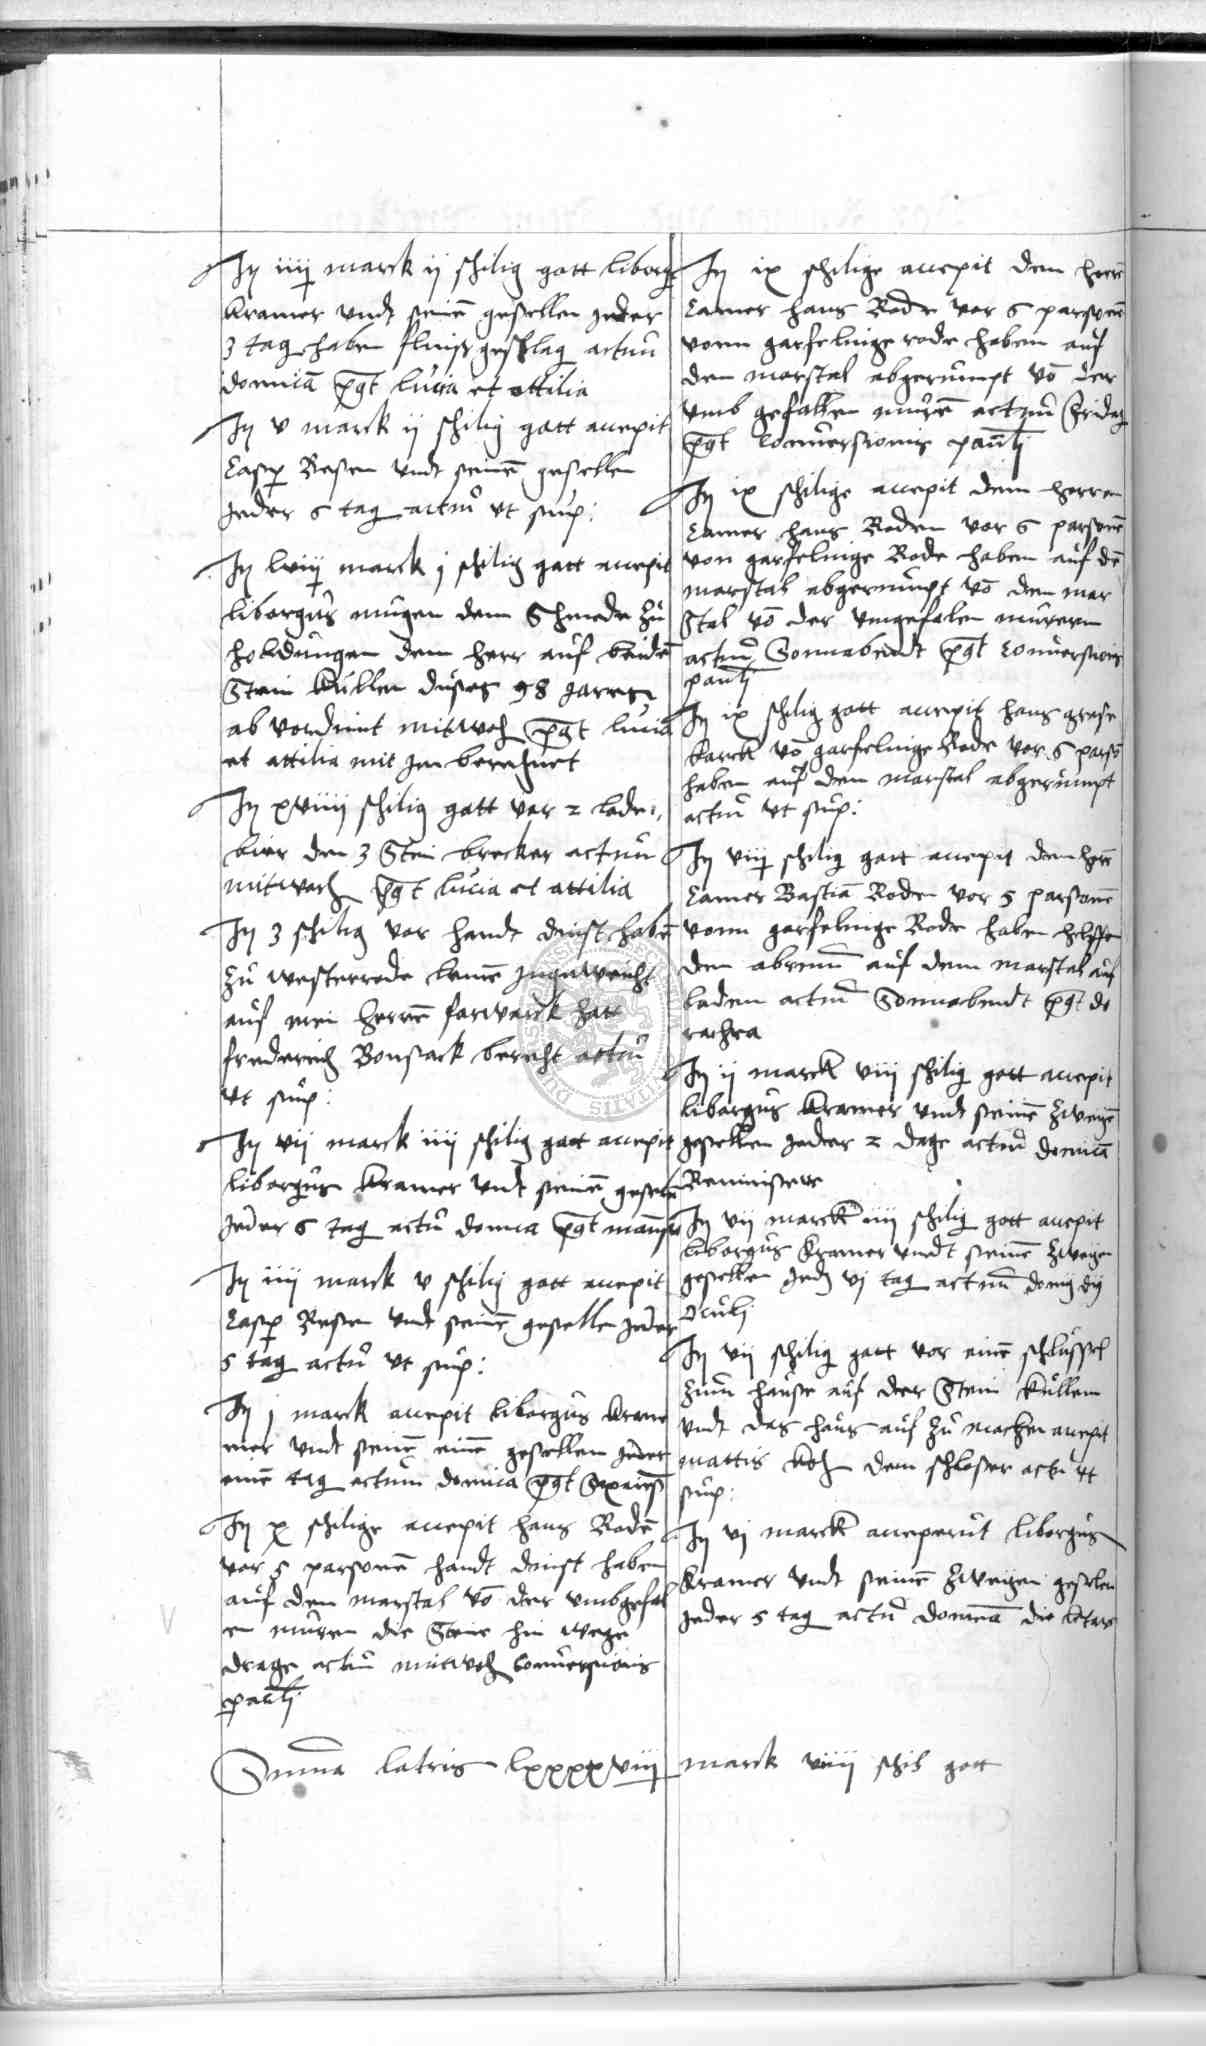 Jŋ iiij marck ij schilig gott liborg
Kramer undt seinē gesellen jeder
3 tag haben fluiß geschlag actum
domicā pqt lucia et ottilia
Jŋ v marck ij schilig gott accepit
Casp Resen undt seinē gesellen
jeder 6 tag actū ut sup:
Jŋ lviij marck j schilig gott accepit
liborgus mugen dem Schmede zu
holdungen dem herr auf beide
Stein kullen dußes 98 jarres
ab vordint mitwoch pqt lucia
et ottilia mit jm berechnet
Jŋ xviiij schilig gott vor 2 lade
bier den 3 Stein brecker actum
mitwoch pqt lucia et ottilia
Jŋ 3 schilig vor handt dinst habē
zu westerrode
auf mei herrē farwarck hatt
frederich Bonsack bericht actū
ut sup:
Jŋ vij marck iiij schilig gott accepit
liborgus Kramer undt seinē geseln
jeder 6 tag actū domica pqt
Jŋ iiij marck v schilig gott accepit
Casp Resen undt seinē gesellen jeder
5 tag actū ut sup:
Jŋ j marck accepit liborgus Kram
mer undt seinē einē gesellen jeder
einē tag actum domica pqt
Jŋ x schilige accepit hans Rodē
vor 5 parsonē handt dinst haben
auf dem marstal vō der umbgefal
en muren die Steine hin wege
drage actum mitwoch Conversionis
pauli
Jŋ ix schilige accepit dem herrē
Camer hans Rode vor 6 parsonē
vonn garfelnige rode haben auf
dem marstal abgerumpt vō der
umb gefallen murē actum fridag
pqt Conversionis pauli
Jŋ ix schilige accepit dem herren
Camer hans Roden vor 6 parsonē
von garfelnige Rode haben auf dē
marstal abgerumpt vō dem mar
Stal vō der umgefalen muren
actum Sonnabendt pqt Conversionis
pauli
Jŋ ix schilig gott accepit hans grose
karck vō garfelnige Rode vor 6 pars
haben auf dem marstal abgerumpt
actū ut sup:
Jŋ viij schilig gott accepit dem herrē
Camer Bastiā Roden vor 5 parsonē
vonn garfelnige Rode haben helffen
den abrum auf dem marstal auf
laden actum Sonnabendt pqt do
rothea
Jŋ ij marck viii schilig gott accepit
liborgus Kramer undt seinē zweiē
gesellen jeder 2 dage actum domicā
Reminiscere
Jŋ vij marck iiij schilig gott accepit
liborgus Kramer undt seinē zweigen
gesellen jeder vj tag actum
Oculi
Jŋ vij schilig gott vor einē schlussel
zum hause auf der Stein kullen
undt das haus auf zu machen accepit
mattis koch dem schloser actū ut
sup:
Jŋ vj marck acceperut liborgus
Kramer undt seinē zweigen geselen
jeder 5 tag actū domicā die letare
Summa latris lxxxxviij marck viiij schil gott